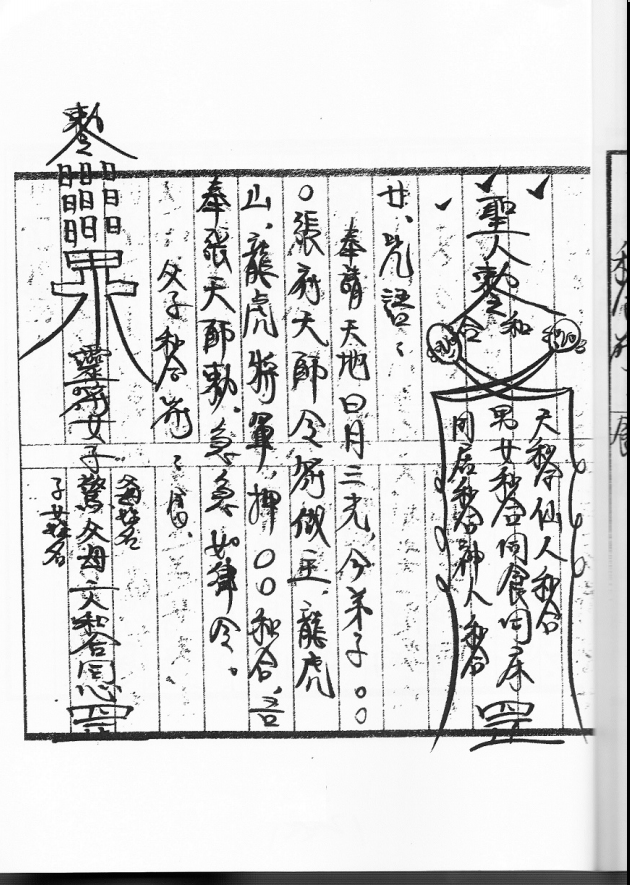 聖人敕
和
合
天和合仙人和合
男女和合同食同床
同居和合神人和合
罡
廿、咒語：
奉請天地日月三光，今弟子〇〇
〇張府天師令符做主，龍虎
山，龍虎將軍，押〇〇和合，吾
奉張天師敕，急急如律令。
父子和合符：
敕令
日日日
日日日
日日
靈符女子驚父母一人和合同心罡
父母姓名
子女姓名